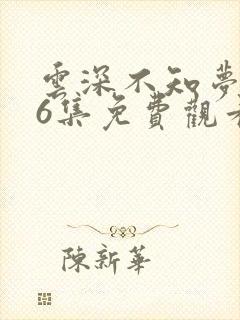 雲深不知夢
6集免費觀看
陳新華